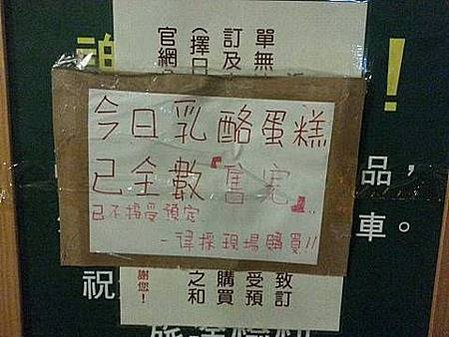 今日乳酪蛋糕
已全數『售完』..
已不接受預定
一律採現場購買!!
單無
訂及
(擇日
官網
!
品，
車。
祝
謝您!
致訂
受預
購買
之和